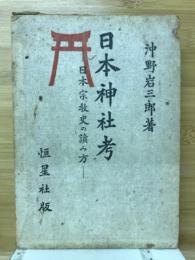 沖野岩三郎著
日本神社考
―日本宗教史の讀み方―
恒星社版